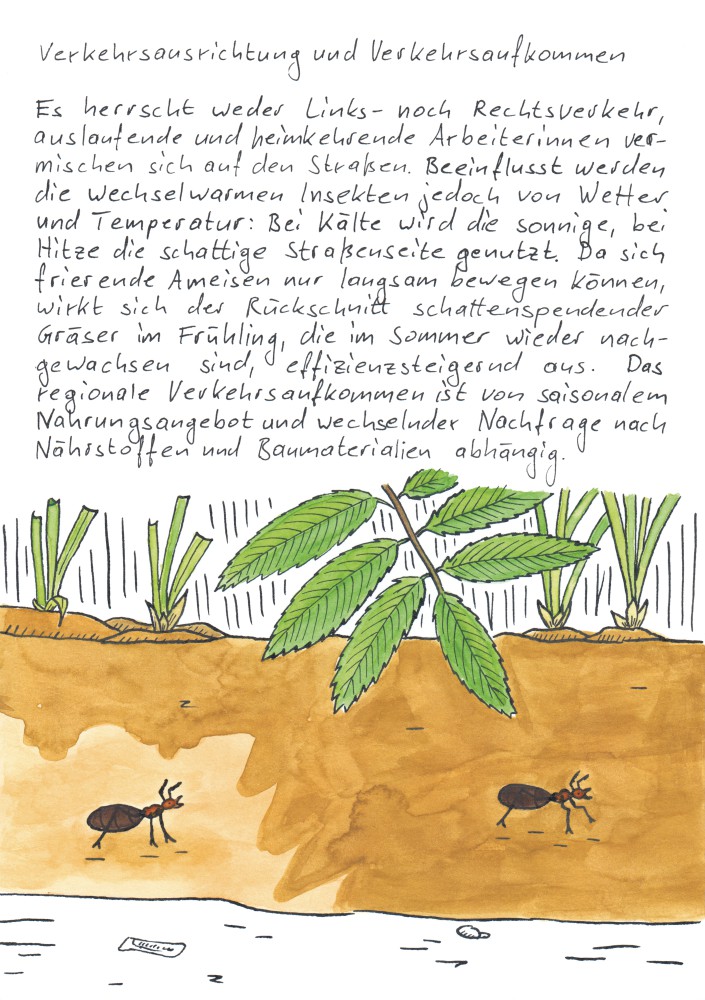 Verkehrsausrichtung und Verkehrsaufkommen
Es herrscht weder Links- noch Rechtsverkehr,
auslaufende und heimkehrende Arbeiterinnen ver-
mischen sich auf den Straßen. Beeinflusst werden
die wechselwarmen Insekten jedoch von Wetter
und Temperatur: Bei Kälte wird die sonnige, bei
Hitze die schattige Straßenseite genutzt. Da sich
frierende Ameisen nur langsam bewegen können,
wirkt sich der Rückschnitt schattenspendender
Gräser im Frühling, die im Sommer wieder nach-
gewachsen sind, effizienzsteigernd aus. Das
regionale Verkehrsaufkommen ist von saisonalem
Nahrungsangebot und wechselnder Nachfrage nach
Nährstoffen und Baumaterialien abhängig.